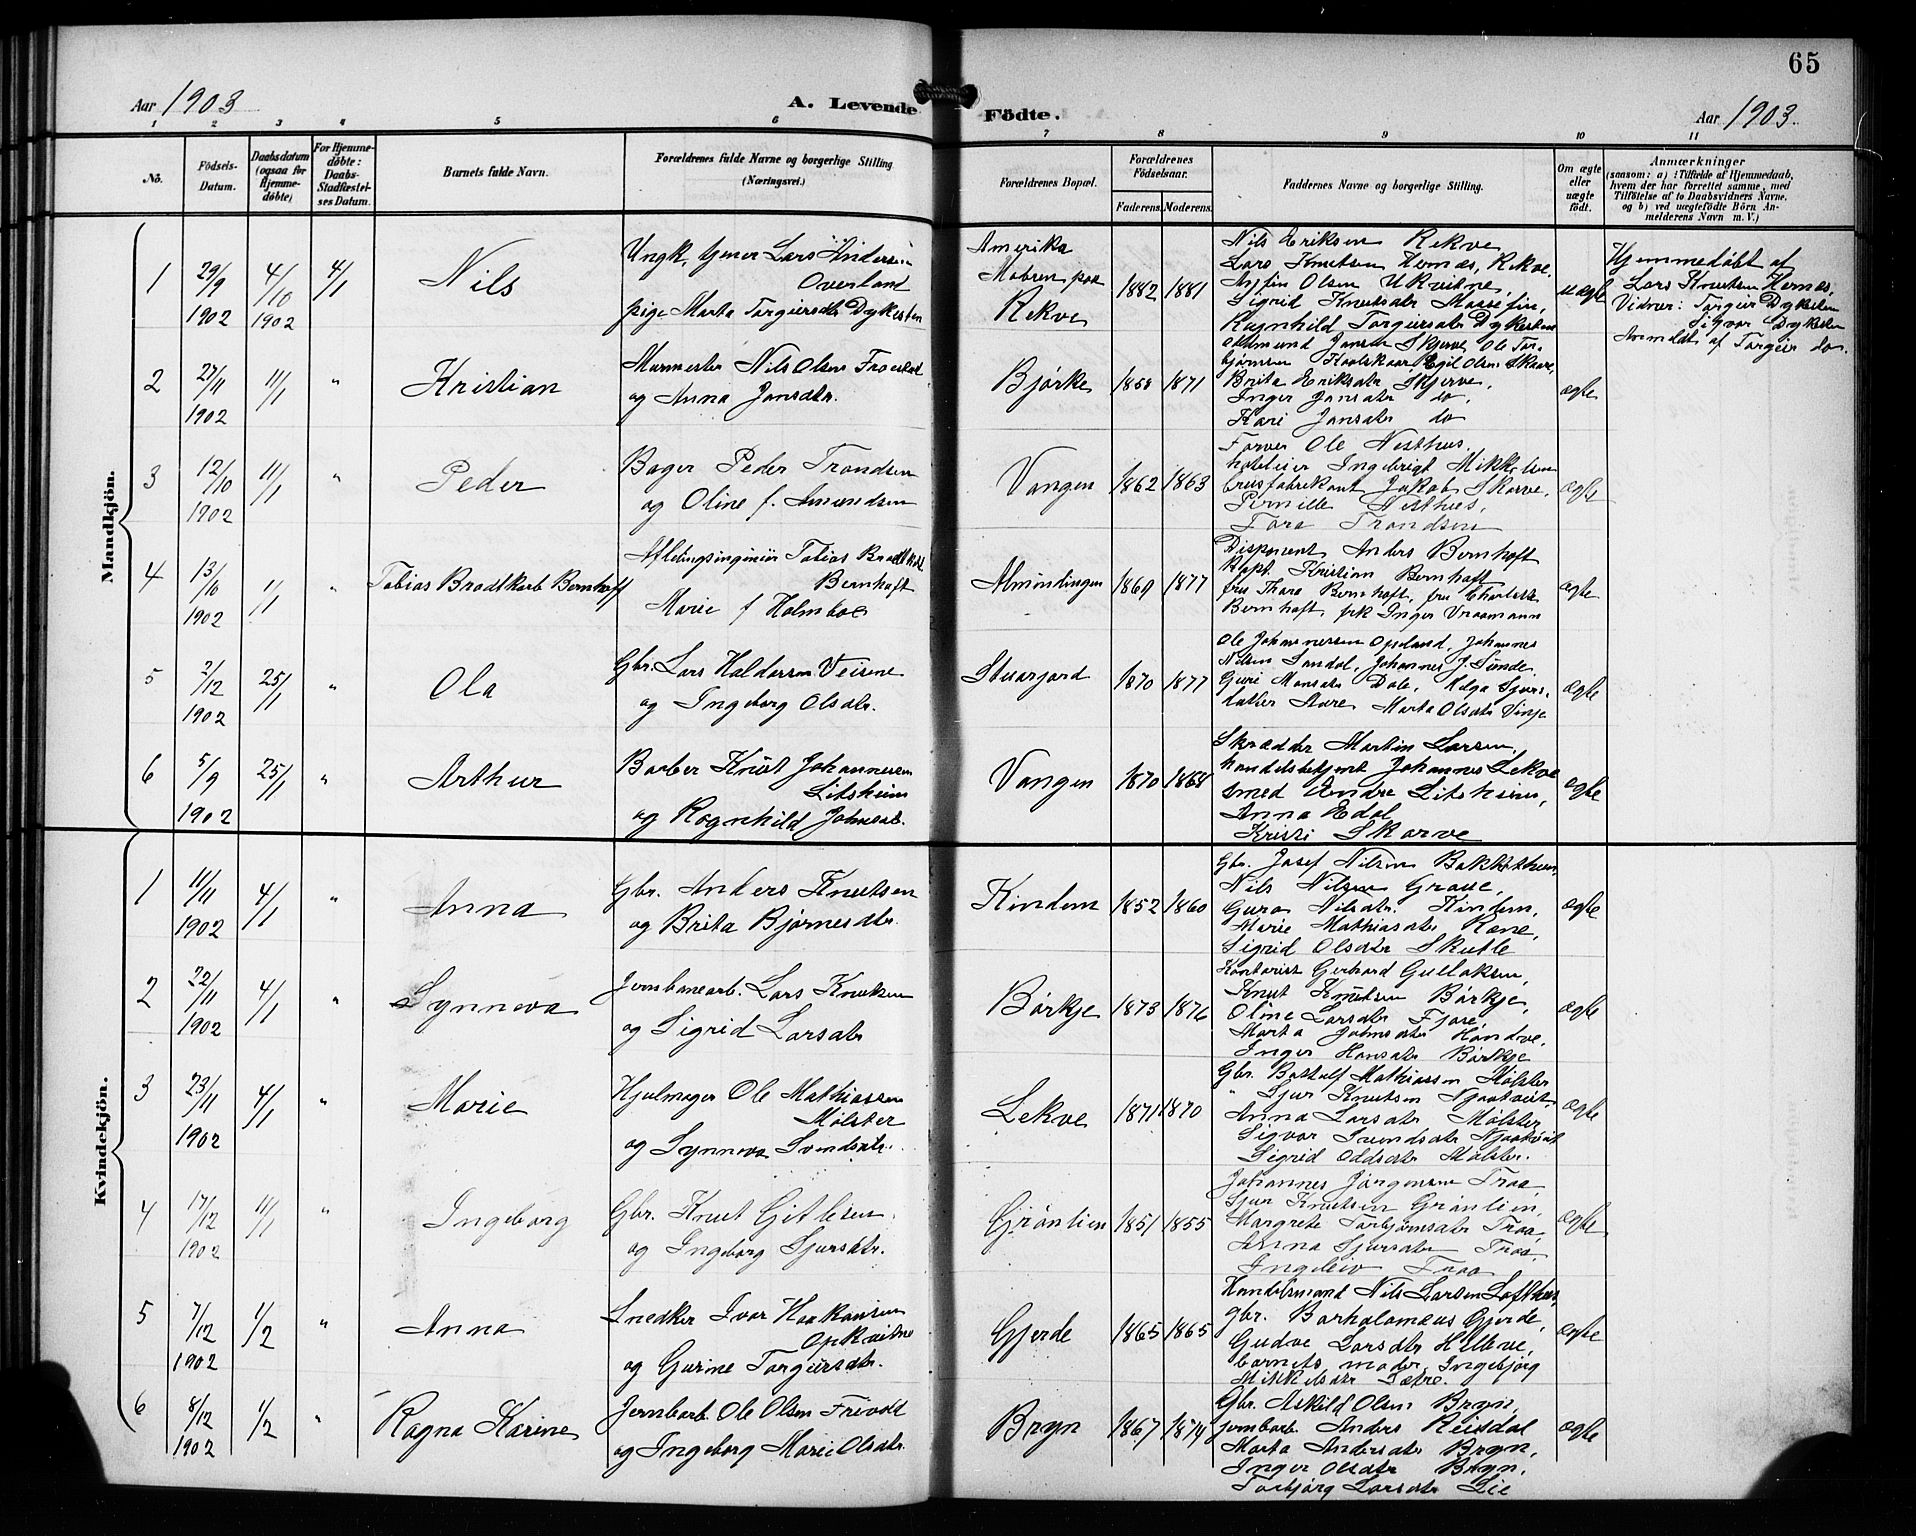 65
Aar 1903
A. Levende
Födte.
Aar 1903.
1 2 3 4 5 6 7 8 9 10 11
No.
Födsels-Datum.
Daabsdatum (ogsaa for Hjemmedöbte)
For Hjemmedöbte: Daabs-Stadfæstelses Datum.
Barnets fulde Navn.
Forældrenes fulde Navne og borgerlige Stilling (Næringsvei.)
Forældrenes Bopæl.
Forældrenes Födselsaar.
Faderens. Moderens.
Faddernes Navne og borgerlige Stilling.
Om ægte eller uægte födt.
Anmærkninger
(saasom: a) i Tilfælde af Hjemmedaab, hvem der har forrettet samme, med Tilföielse af to Daabsvidners Navne. og b) ved uægtefödte Börn Anmelderens Navn m. V.)
Mandkjön.
1
29/9 1902
4/10 1902
4/1
Nils
Ungk. tjener Lars Andersen
Overland
pige Marta Torgiersdtr Dykesten
Amerika
Moderen paa
Rekve
1882 1881
Nils Eriksen Rekve
Lars Knutsen Hernes, Rekve.
Arnfin Olsen Ukvitne,
Sigrid Knutsdtr
Ragnhild Torgiersdtr Dykesten
uægte
Hjemmedöbt af
Lars Knutsen Hernes,
Vidner: Torgier Dykesten
Sigvor Dykesten
Anmeldt af Torgier do.
2
27/11 1902
11/1
"
Kristian
Murmester Nils Olsen
og Anna Jonsdtr.
Björke
1868 1871
Jonsen Skjerve, Ole Tor-
björnsen Egil Olsen Skaar,
Brita Eriksdtr Skjerve,
Inger Jonsdtr do,
Kari Jonsdtr do
ægte
3
12/10 1902
11/1
"
Peder
Bager Peder Trondsen
og Oline f. Amundsen
Vangen
1862 1863
Farver Ole Nesthus,
hotelier Ingebrigt Mikkelsen
brusfabrikant Jakob Skorve,
Pernille Nesthus,
Tora Trondsen
ægte
4
13/10 1902
1/1
"
Tobias Brodtkorb Bernhoft
Afdelingsingeniör Tobias Brodtkorb
Bernhoft
Marie f Holmboe
Almindingen
1869 1877
Disponent Anders Bernhoft
Kapt. Kristian Bernhoft
fru Thora Bernhoft, fru Charlotte
Bernhoft, frk Inger Vraamann
ægte
5
2/12 1902
25/1
"
Ola
Gbr. Lars Haldorsen Veisene
og Ingeborg Olsdtr.
1870 1877
Ole Johannessen Opeland, Johannes
Nilsen Sandal, Johannes J. Sunde.
Guri Monsdtr Dale, Helga Sjurs-
datter Aare Marta Olsdtr Vinje
ægte
6
5/9 1902
25/1
"
Arthur
Barber Knut Johannesen
Litsheim
og Ragnhild Johnsdtr.
Vangen
1870 1868
Skrædder Martin Larsen,
handelsbetjent Johannes Lekve
smed Endre Litsheim,
Anna Edal
Kristi Skorve
ægte
Kvindekjön.
1
11/11 1902
4/1
"
Anna
Gbr. Anders Knutsen
og Brita Björnesdtr.
Kindem
1852 1860
Gbr. Josef Nilsen
Nils Nilsen Graue,
Guro Nilsdtr. Kindem,
Marie Mathiasdtr Rene,
Sigrid Olsdtr Skutle
ægte
2
22/11 1902
4/1
"
Synneva
Jernbanearb. Lars Knutsen
og Sigrid Larsdtr
Börkje
1873 1876
Kontorist Gerhard Gullaksen,
Knut Knutsen Börkje,
Oline Larsdtr Fjose,
Marta Johnsdtr Handve,
Inger Hansdtr Börkje
ægte
3
23/11 1902
4/1
"
Marie
Hjulmager Ole Mathiassen
Mölster
og Synneva Svendsdtr.
Lekve
1871 1870
Gbr. Bottolf Mathiassen Mölster
" Sjur Knutsen
Anna Larsdtr Mölster
Sigvor Svendsdtr
Sigrid Oddsdtr Mölster.
ægte
4
17/12 1902
11/1
"
Ingeborg
Gbr. Knut Gitlesen
og Ingeborg Sjursdtr.
Grönlien
1851 1855
Johannes Jörgensen Traa
Sjur Knutsen Grönlien,
Margrete Torbjörnsdtr Traa,
Anna Sjursdtr Traa,
Ingeleiv Traa
ægte
5
7/12 1902
1/2
"
Anna
Snedker Ivar Haakonsen
Opkvitne
og Gurine Torgiersdtr.
Gjerde
1865 1865
Handelsmand Nils Larsen Lofthus,
gbr. Bartholomæus Gjerde,
Gudve Larsdtr Helleve,
barnets moder, Ingebjörg
Mikkelsdtr Sætre.
ægte
6
8/12 1902
1/2
"
Ragna Karine
Jernbarb. Ole Olsen Trevolt
og Ingeborg Marie Olsdtr.
Bryn
1867 1874
Gbr. Askild Olsen Bryn,
jernbarb. Anders Reisdal
Marta Andersdtr Bryn,
Inger Olsdtr Bryn,
Torbjörg Larsdtr Lie
ægte